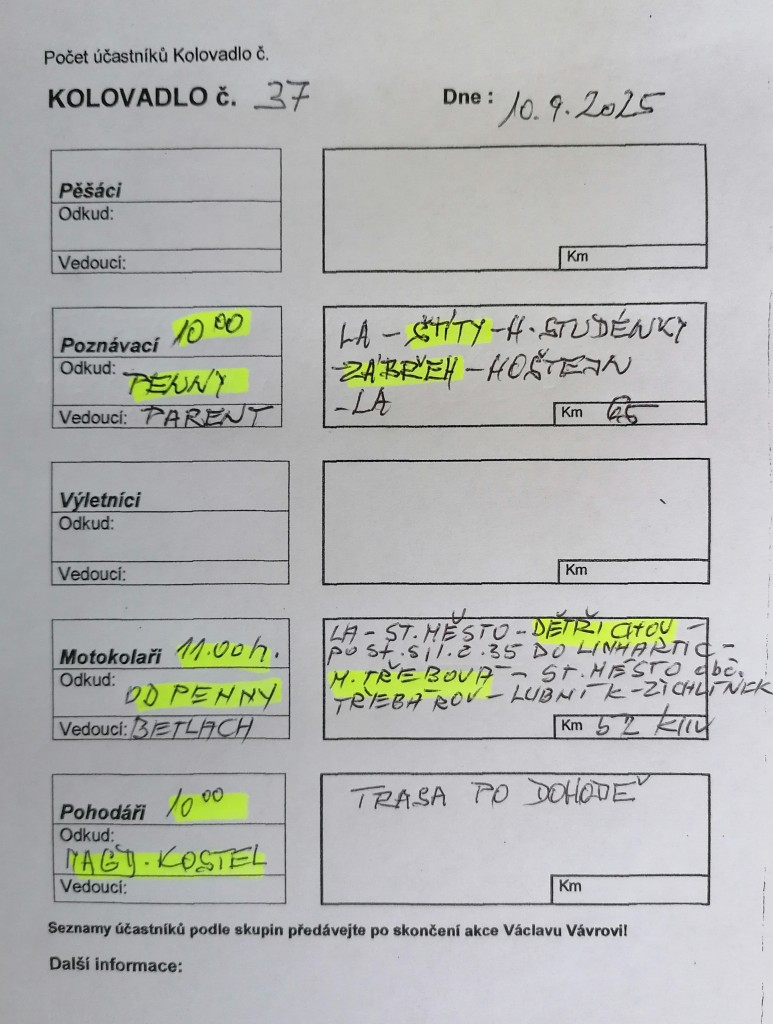 Počet účastníků Kolovadlo č.
KOLOVADLO č. 37 Dne : 10.9.2025
Pěšáci
Odkud:
Vedoucí:
Km
Poznávací 10 00
Odkud: PENNY
Vedoucí: PARENT
LA - ŠTÍTY - H. STUDÉNKY
ZÁBŘEH - HOŠTEJN
- LA
Km 65
Výletníci
Odkud:
Vedoucí:
Km
Motokolaři 11.00 h.
Odkud: OD PENNY
Vedoucí: BETLACH
LA - ST. MĚSTO - DĚTŘICHOV -
po st. sil. 2. 35 DO LINHARTIC -
M. TŘEBOVÁ - ST. MĚSTO obč.
TŘEBAŘOV - LUBNÍK - ZICHLÍNEK
Km 52 km
Pohodáři 10 00
Odkud:
MAGD. KOSTEL
Vedoucí:
TRASA PO DOHODĚ
Km
Seznamy účastníků podle skupin předávejte po skončení akce Václavu Vávrovi!
Další informace: